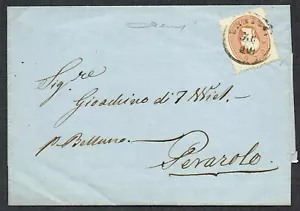 Sig.re
Gioachino di T Wiel.
p. Belluno
Perarolo